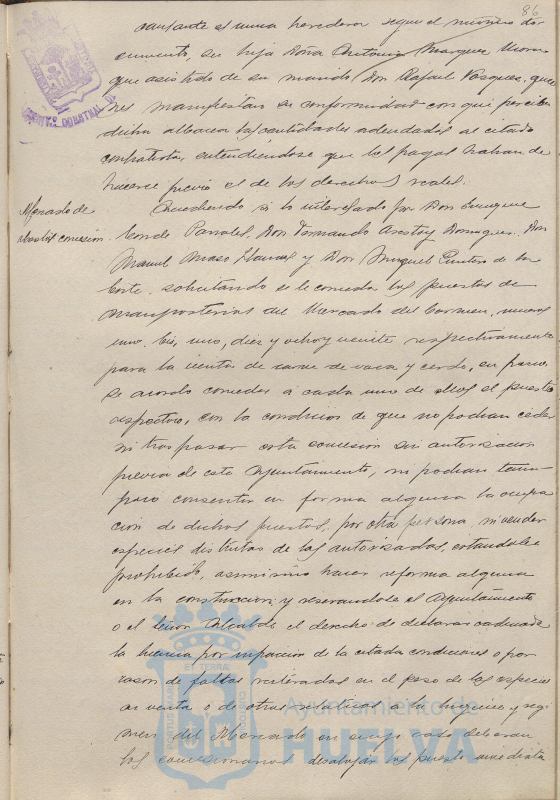 86
causante el unica heredera segun el mismo do-
cumento, su hija Doña Antonia Marquez
que asistida de su marido Don Rafael Vazquez, que
nes manifiestan su conformidad con que perciba
dicho albacea las cantidades adeudadas al citado
contratista, entendiéndose que los pagos habran de
hacerse previo el de los derechos reales.
Mercado de
abastos concesion.
Accediendo a lo interesado por Don Enrique
Conde Don Fernando Don
Manuel y Don Miguel de la
Corte, solicitando se le conceda los puestos de
mamposterias del Mercado del Carmen, numeros
uno bis, uno, diez y ocho y veinte respectivamente
para la venta de carne de vaca y cerdo, en fresco,
se acordo conceder a cada uno de ellos el puesto
respectivo, con la condicion de que no podran ceder
ni traspasar esta concesion sin autorizacion
previa de este Ayuntamiento, ni podran tam-
poco consentir en forma alguna la ocupa
cion de dichos puestos, por otra persona ni vender
especies distintas de las autorizadas, estandole
prohibido, asimismo hacer reforma alguna
en la construccion; y reservandole el Ayuntamiento
o el Señor Alcalde el derecho de declarar caducada
la licencia por infraccion de la citada condiciones o por
razon de faltas reiteradas en el peso de las especies
en venta o de otras relativas a la higiene y regi
men del Mercado en cuyo caso deberan
los concesionarios desalojar los puesto inmediata
Ayuntamiento de
HUELVA